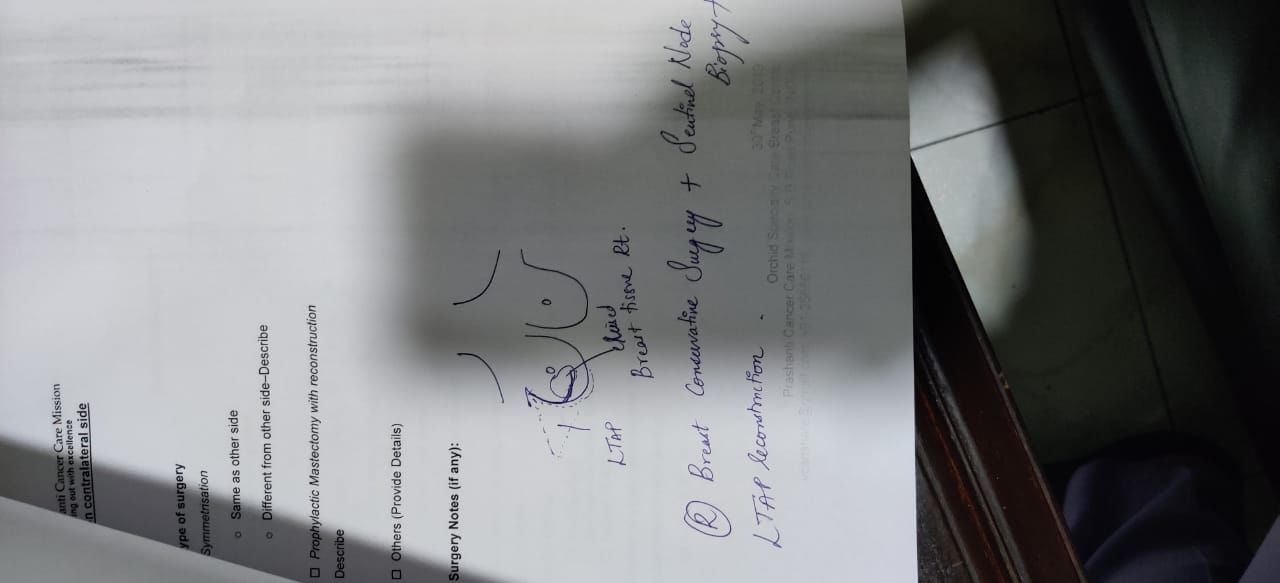 anti Cancer Care Mission
ing out with excellence
n contralateral side
ype of surgery
Symmetrisation
o Same as other side
o Different from other side–Describe
☐ Prophylactic Mastectomy with reconstruction
Describe
☐ Others (Provide Details)
Surgery Notes (if any):
LTAP
Breast tissue Rt.
(R) Breast Conservative Surgery + Sentinel Node
Biopsy +
LTAP reconstruction.
30th May, 20
Prashanti Cancer Care